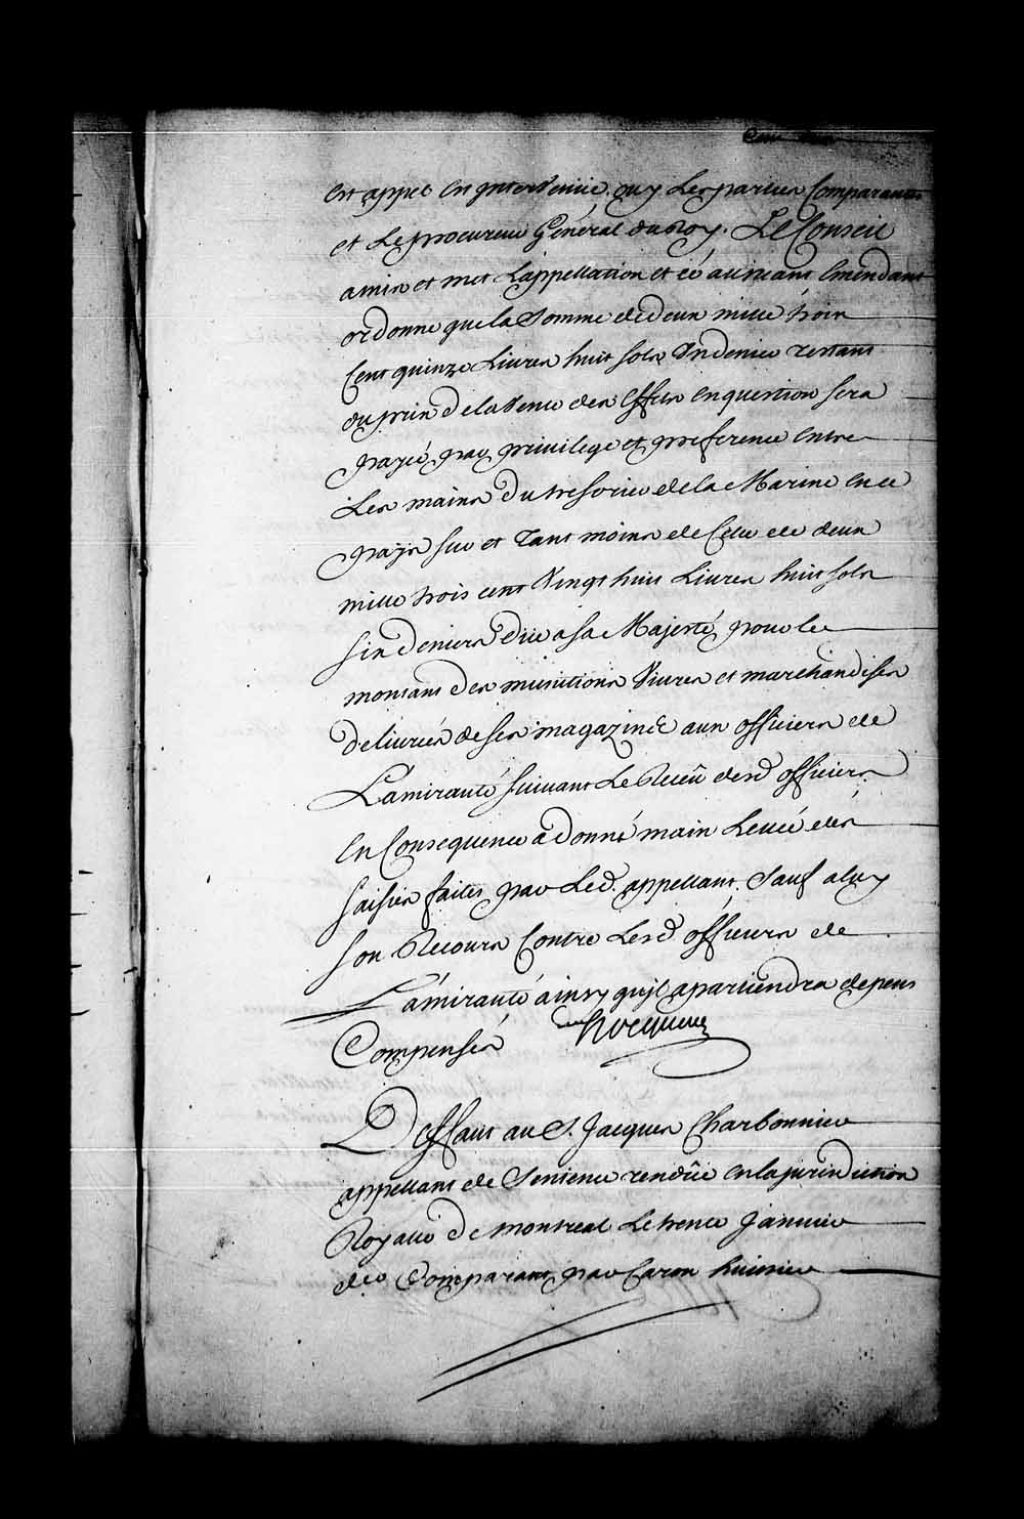 est appel est intervenüe. ouy Les parties Comparantes
et Le procureur Général du Roy. Le Conseil
a mis et met L'appellation et cé au neant Emendant
ordonne que la Somme de deux mille trois
Cent quinze Livres huit sols Un denier restant
du prix de la Vente des Effets en question sera
payé par privilege et preference entre
Les mains du tresorier de la Marine en ce
pays sur et Tant moins de Celle de deux
mille trois cent Vingt huit Livres huit sols
six deniers düe a sa Majesté, pour le
montant des munitions Vivres et marchandises
delivrées de ses magazins aux officiers de
L'amirauté suivant Le Receû desd. officiers
En Consequence a donné main Levée des
saisies faites par Led. appellant. Sauf a luy
son Recours Contre Lesd. officiers de
L'amirauté ainsy qu'jl apartiendra depens
Compensés Hocquart
Deffaut au S. Jacques Charbonnier
appellant de Sentence rendûe en la jurisdiction
Royalle de montreal Le trente Janvier
der Comparant par Caron huissier